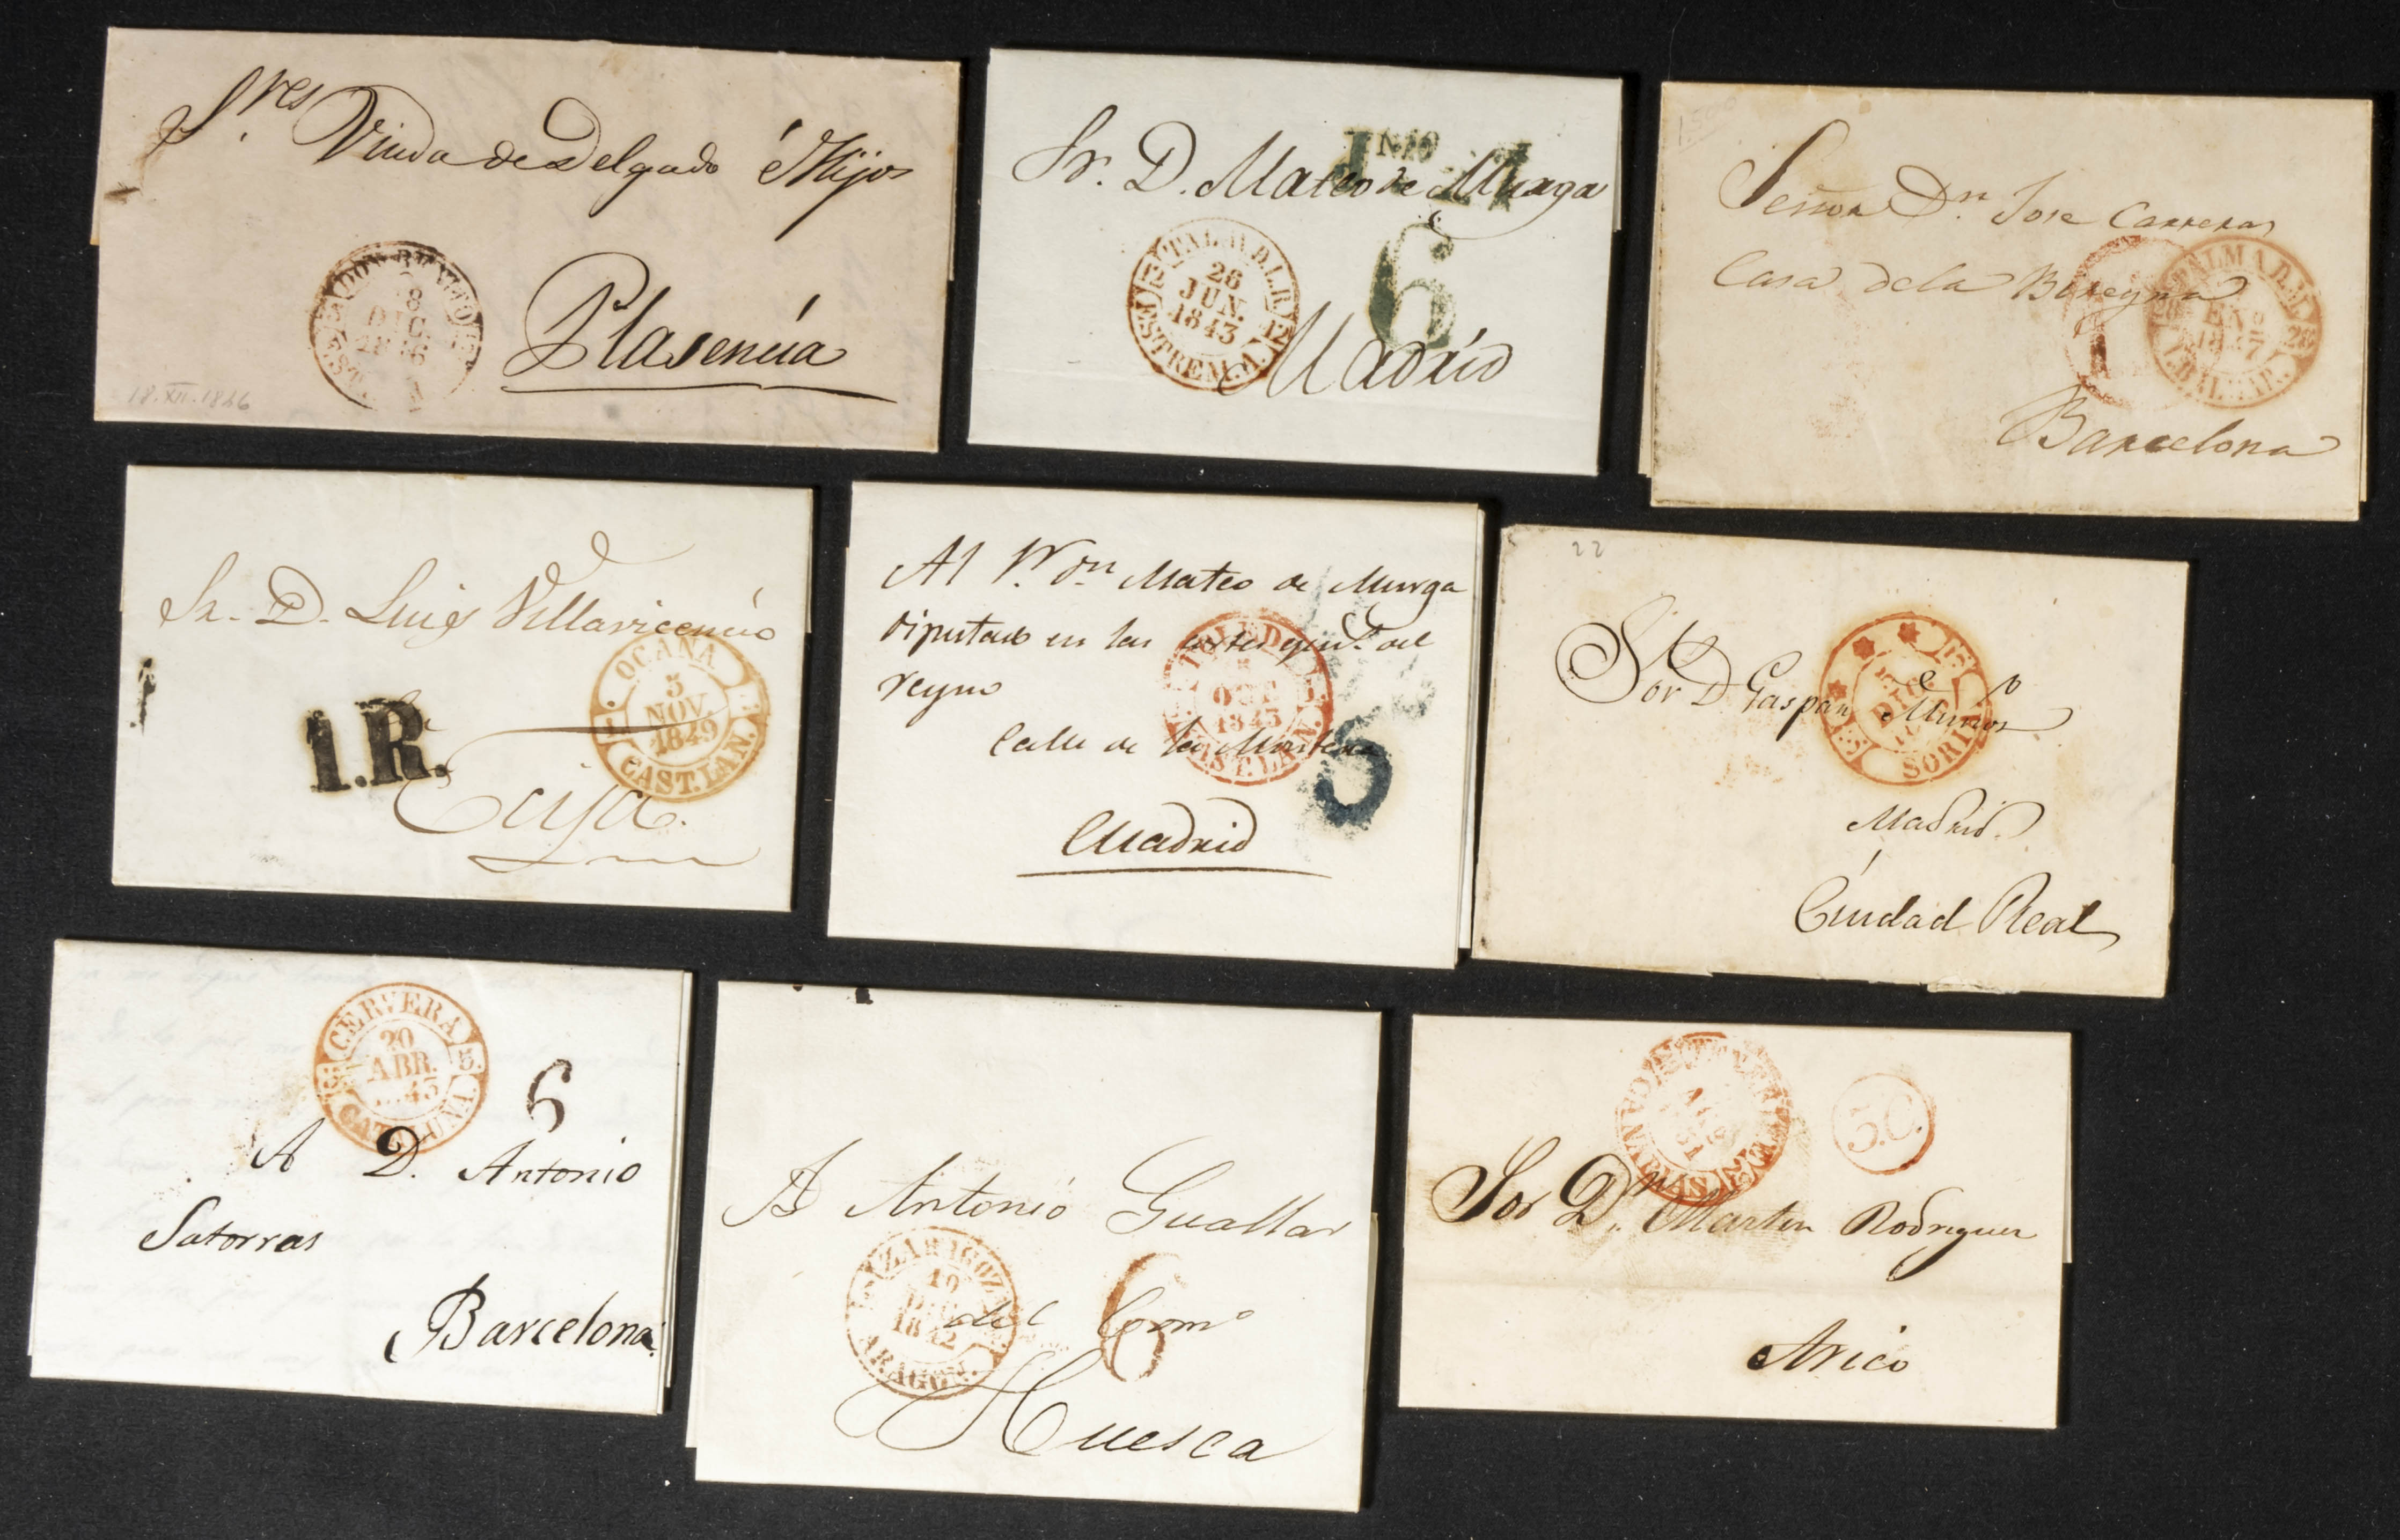 Sres Viuda de Delgado é Hijos
DON BENITO
18
DIC.
Plasencia
18.XII.1846
Sr. D. Mateo de Murga
6
TALAV. D. L. R.
12
26
JUN.
1843
12
ESTREM. A.
Madrid
1.500
Señor Dn. Jose Carreras
Casa dela
1
PALMA D. M.
28
I. BALEAR.
Barcelona
Sr. D. Luis Villavicencio
1.R.
OCAÑA
5
NOV.
1849
CAST. LA N.
Al Sr. Dn Mateo de Murga
Diputado en las cortes del
reyno
5
OCT
1843
CAST. LA N.
Calle de la Montera
Madrid
22
Sor D Gaspar Muños
15
DIC.
15
SORIA
Madrid.
Ciudad Real
CERVERA
20
ABR.
CATALUÑA.
6
A D. Antonio
Satorras
Barcelona.
A Antonio Guallar
ZARAGOZA
10
DIC
1842
ARAGON.
6
del Como
Huesca
CANARIAS
3.C.
Sor Dn. Martin Rodriguez
Arico